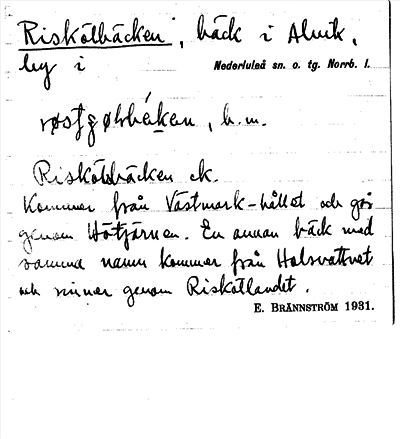 Riskölbäcken, bäck i Alvik,
by i Nederluleå sn. o. tg. Norrb. l.
b.m.
Riskölsbäcken ek.
Kommer från Västmark-hållet och går
genom Hötjärnen. En annan bäck med
samma namn kommer från Holsvattnet
och rinner genom Riskötlandet.
E. BRÄNNSTRÖM 1931.